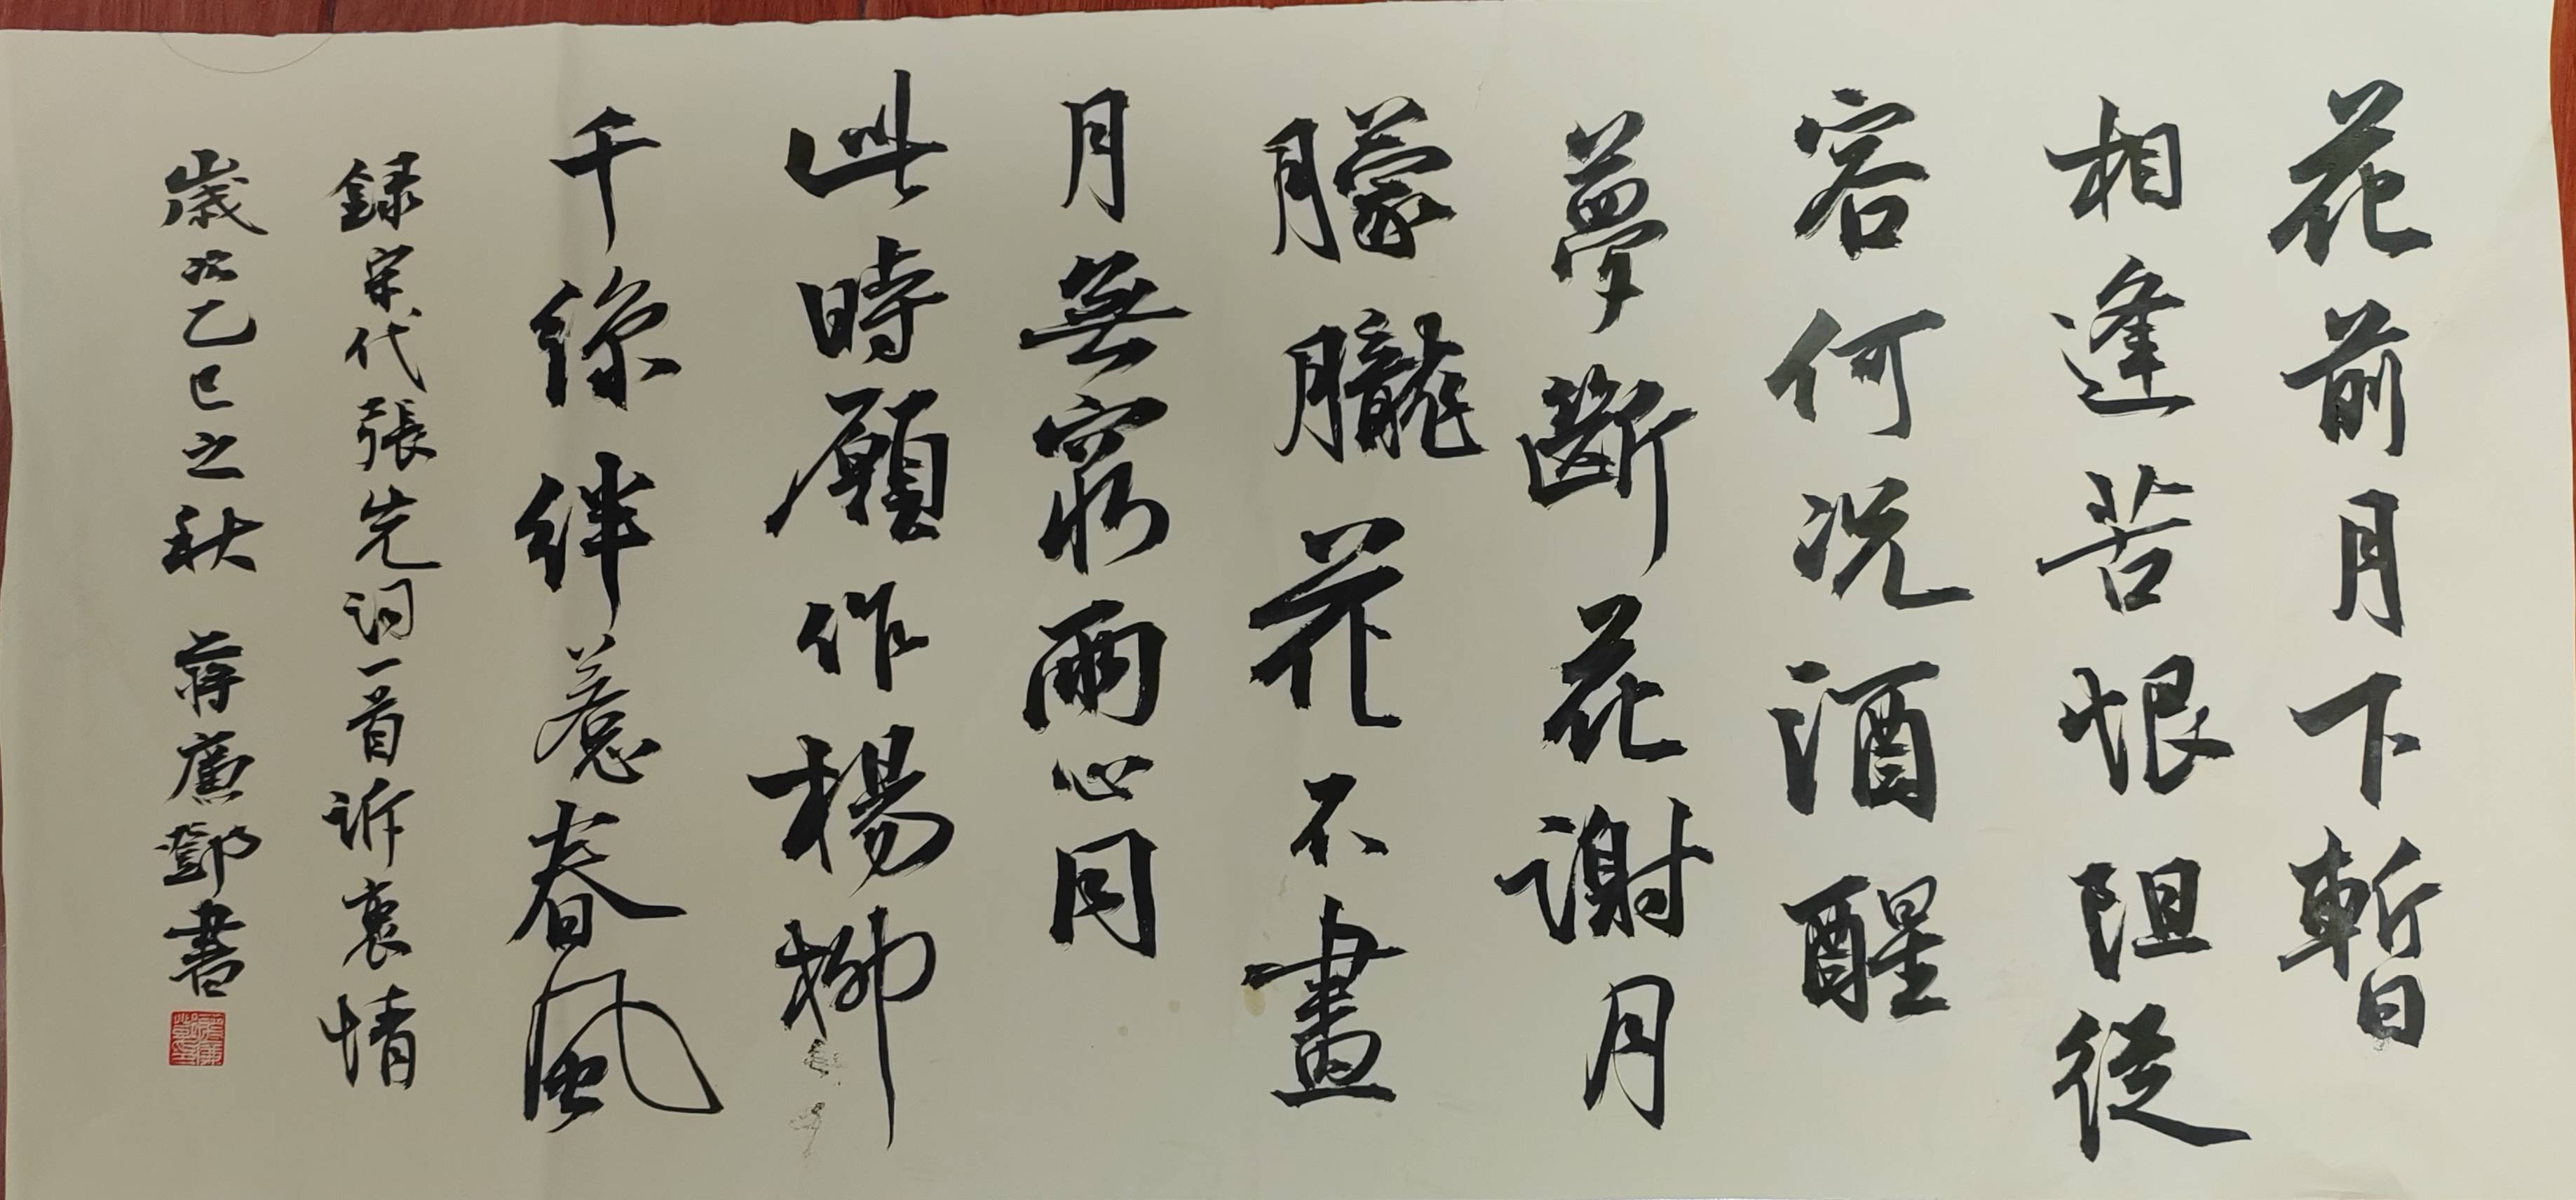 花前月下暫
相逢苦恨阻從
容何况酒醒
夢斷花謝月
朦朧花不盡
月無窮兩心同
此時願作楊柳
千絲絆惹春風
録宋代張先詞一首訴衷情
歲次乙巳之秋 蔣廣鄧書